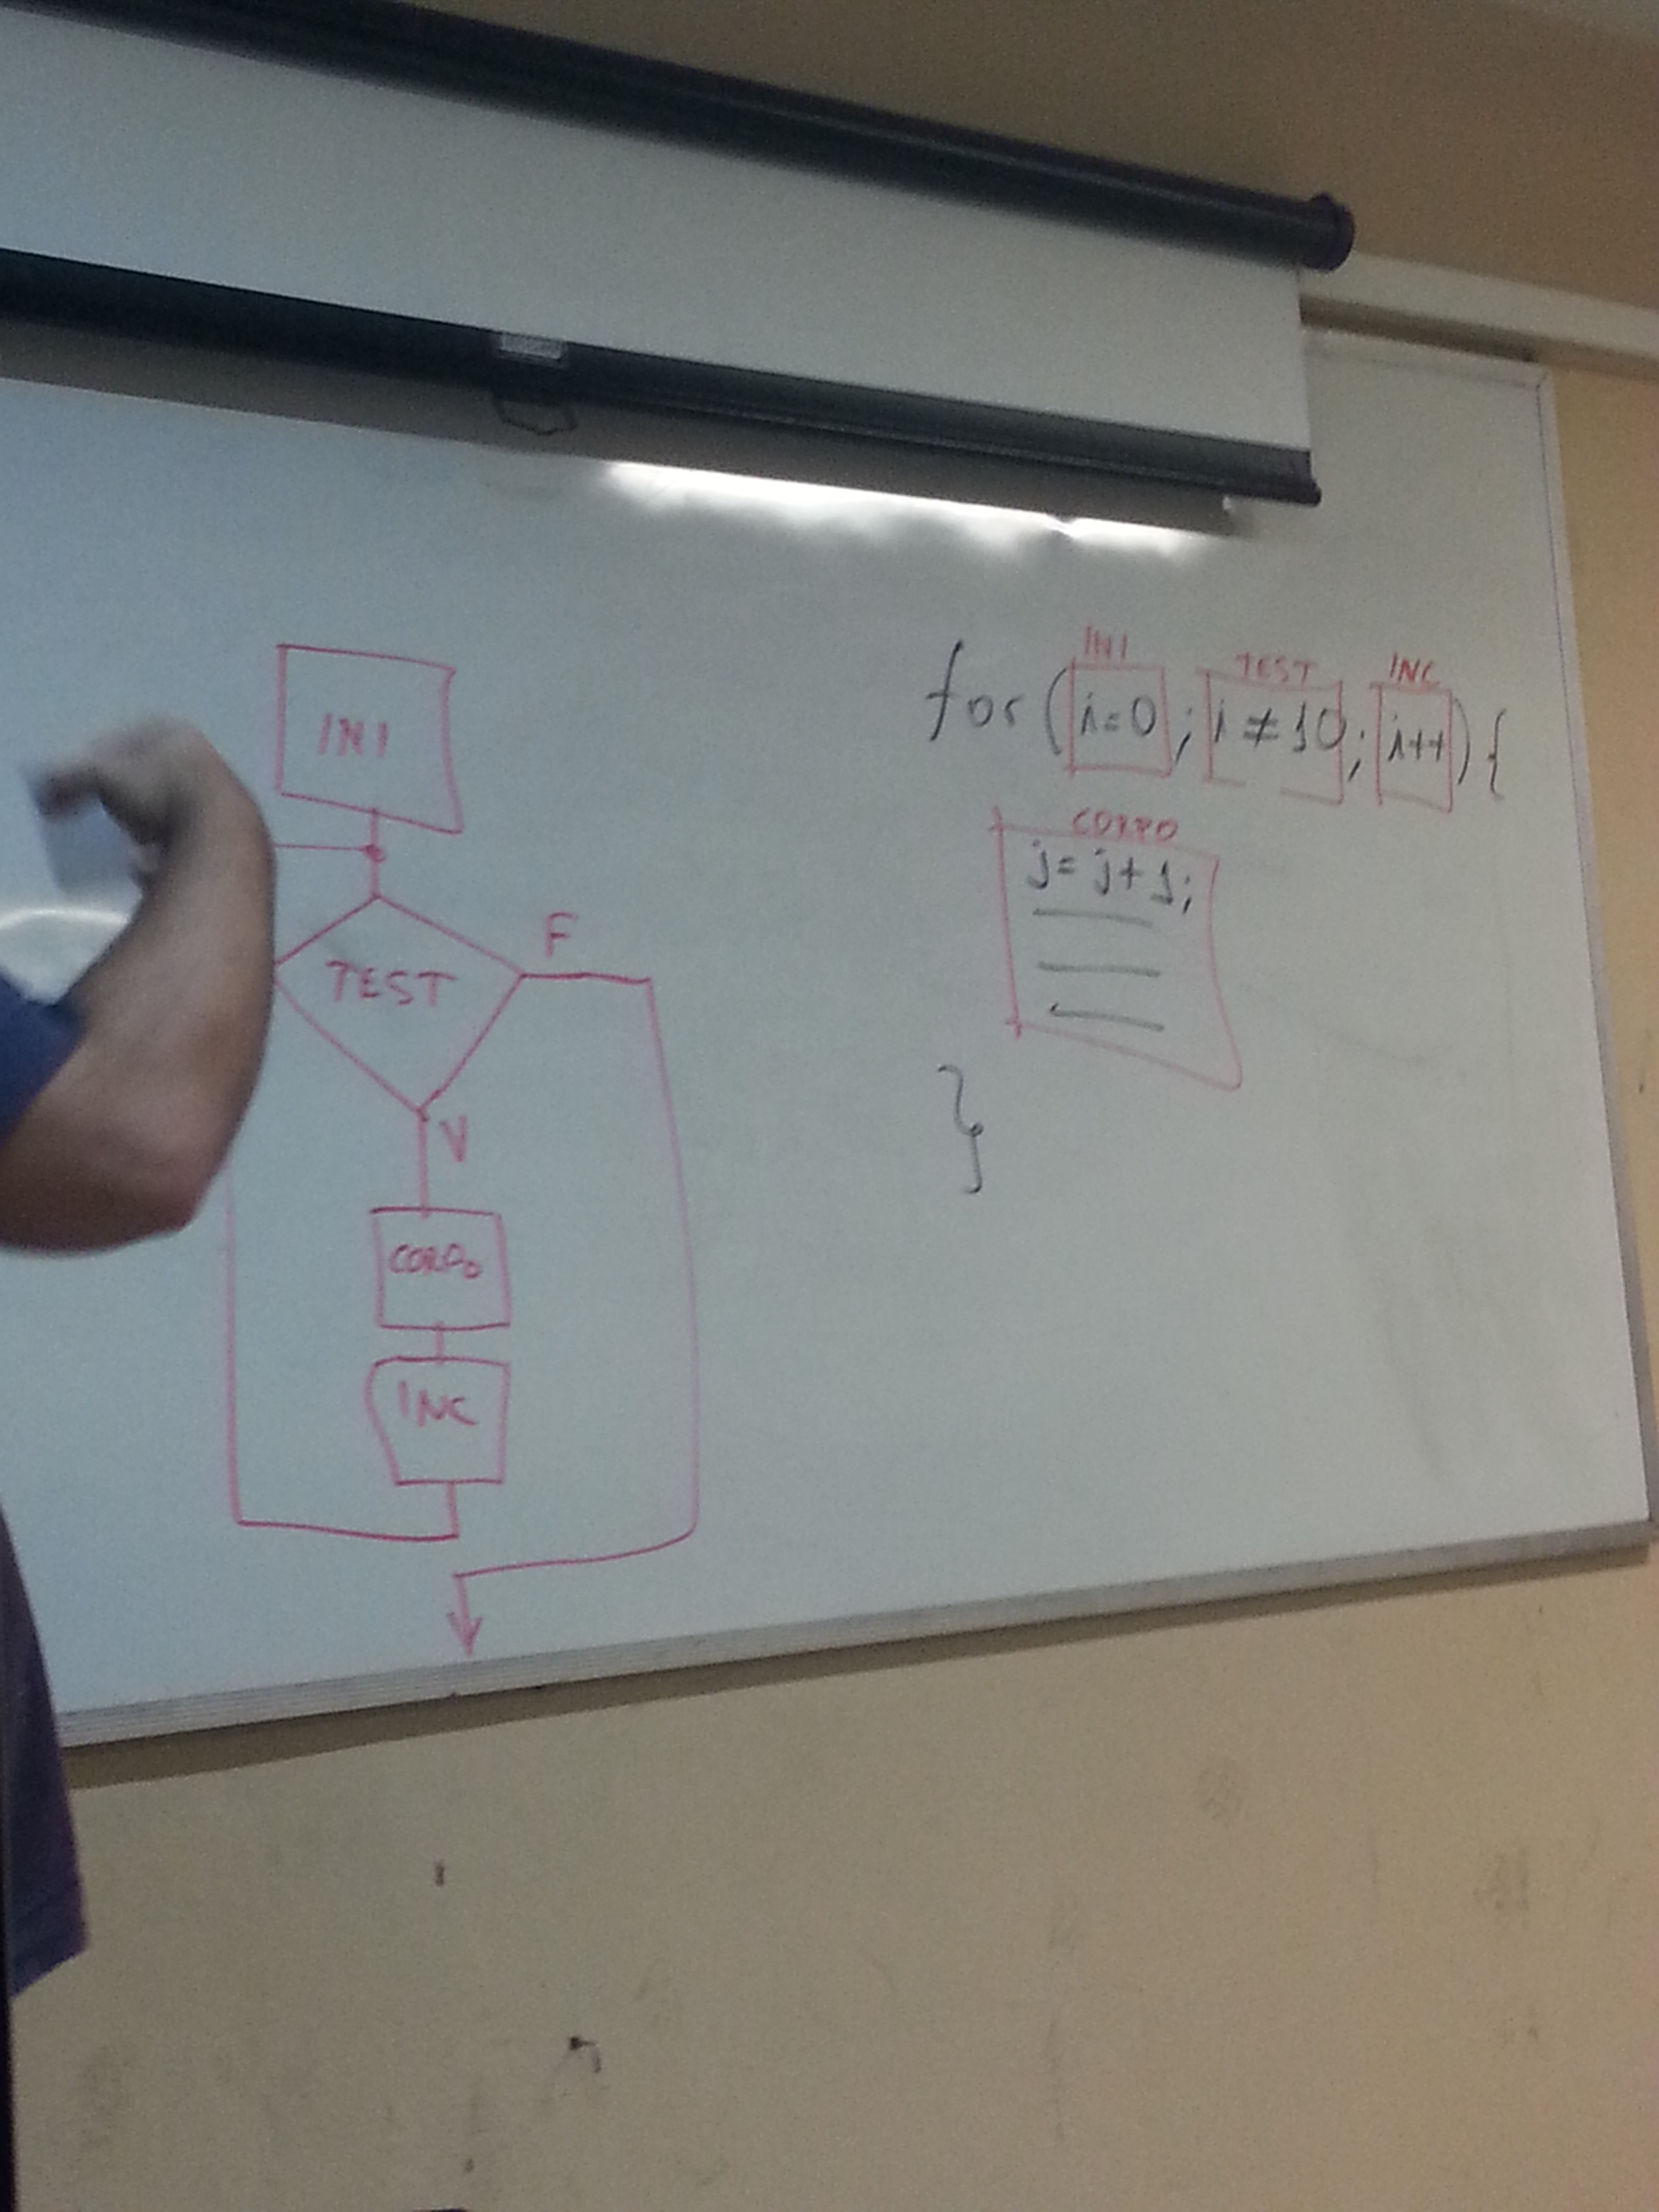 INI
TEST
F
V
CORPO
INC
INI TEST INC
for (i=0; i≠10; i++) {
CORPO
j=j+1;
}